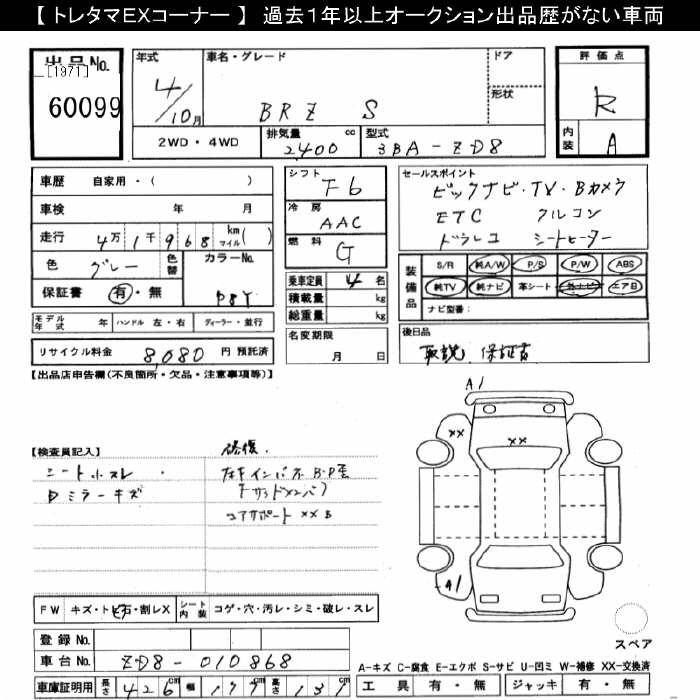 【 トレタマEXコーナー 】 過去1年以上オークション出品歴がない車両
出品No.
[1971]
60099
年式
4/10月
車名・グレード
BRZ S
ドア
形状
2WD・4WD
排気量 2400 cc
型式 3BA-ZD8
評価点
R
内装
A
車歴 自家用・( )
車検 年 月
走行 4万1千968 km マイル( )
色 グレー 色替 カラーNo.
保証書 有・無 P8Y
モデル年式 年 ハンドル 左・右 ディーラー・並行
リサイクル料金 8080 円 預託済
シフト
F6
冷房
AAC
燃料
G
乗車定員 4 名
積載量 kg
総重量 kg
名変期限
月 日
セールスポイント
ビックナビ・TV・Bカメラ
ETC クルコン
ドラレコ シートヒーター
装備品
S/R 純A/W P/S P/W ABS
純TV 純ナビ 革シート 外ナビ エアB
ナビ型番:
後日品
取説 保証書
【出品店申告欄(不良箇所・欠品・注意事項等)】
【検査員記入】
シート小スレ
Dミラーキズ
修復
コアサポート XX
A1
XX
XX
A1
FW キズ・ト・飛石・割レX
シート内装 コゲ・穴・汚レ・シミ・破レ・スレ
登録No.
車台No. ZD8-010868
車庫証明用 長さ 426cm 幅 177cm 高さ 131
スペア
A-キズ C-腐食 E-エクボ S-サビ U-凹ミ W-補修 XX-交換済
工具 有・無 ジャッキ 有・無